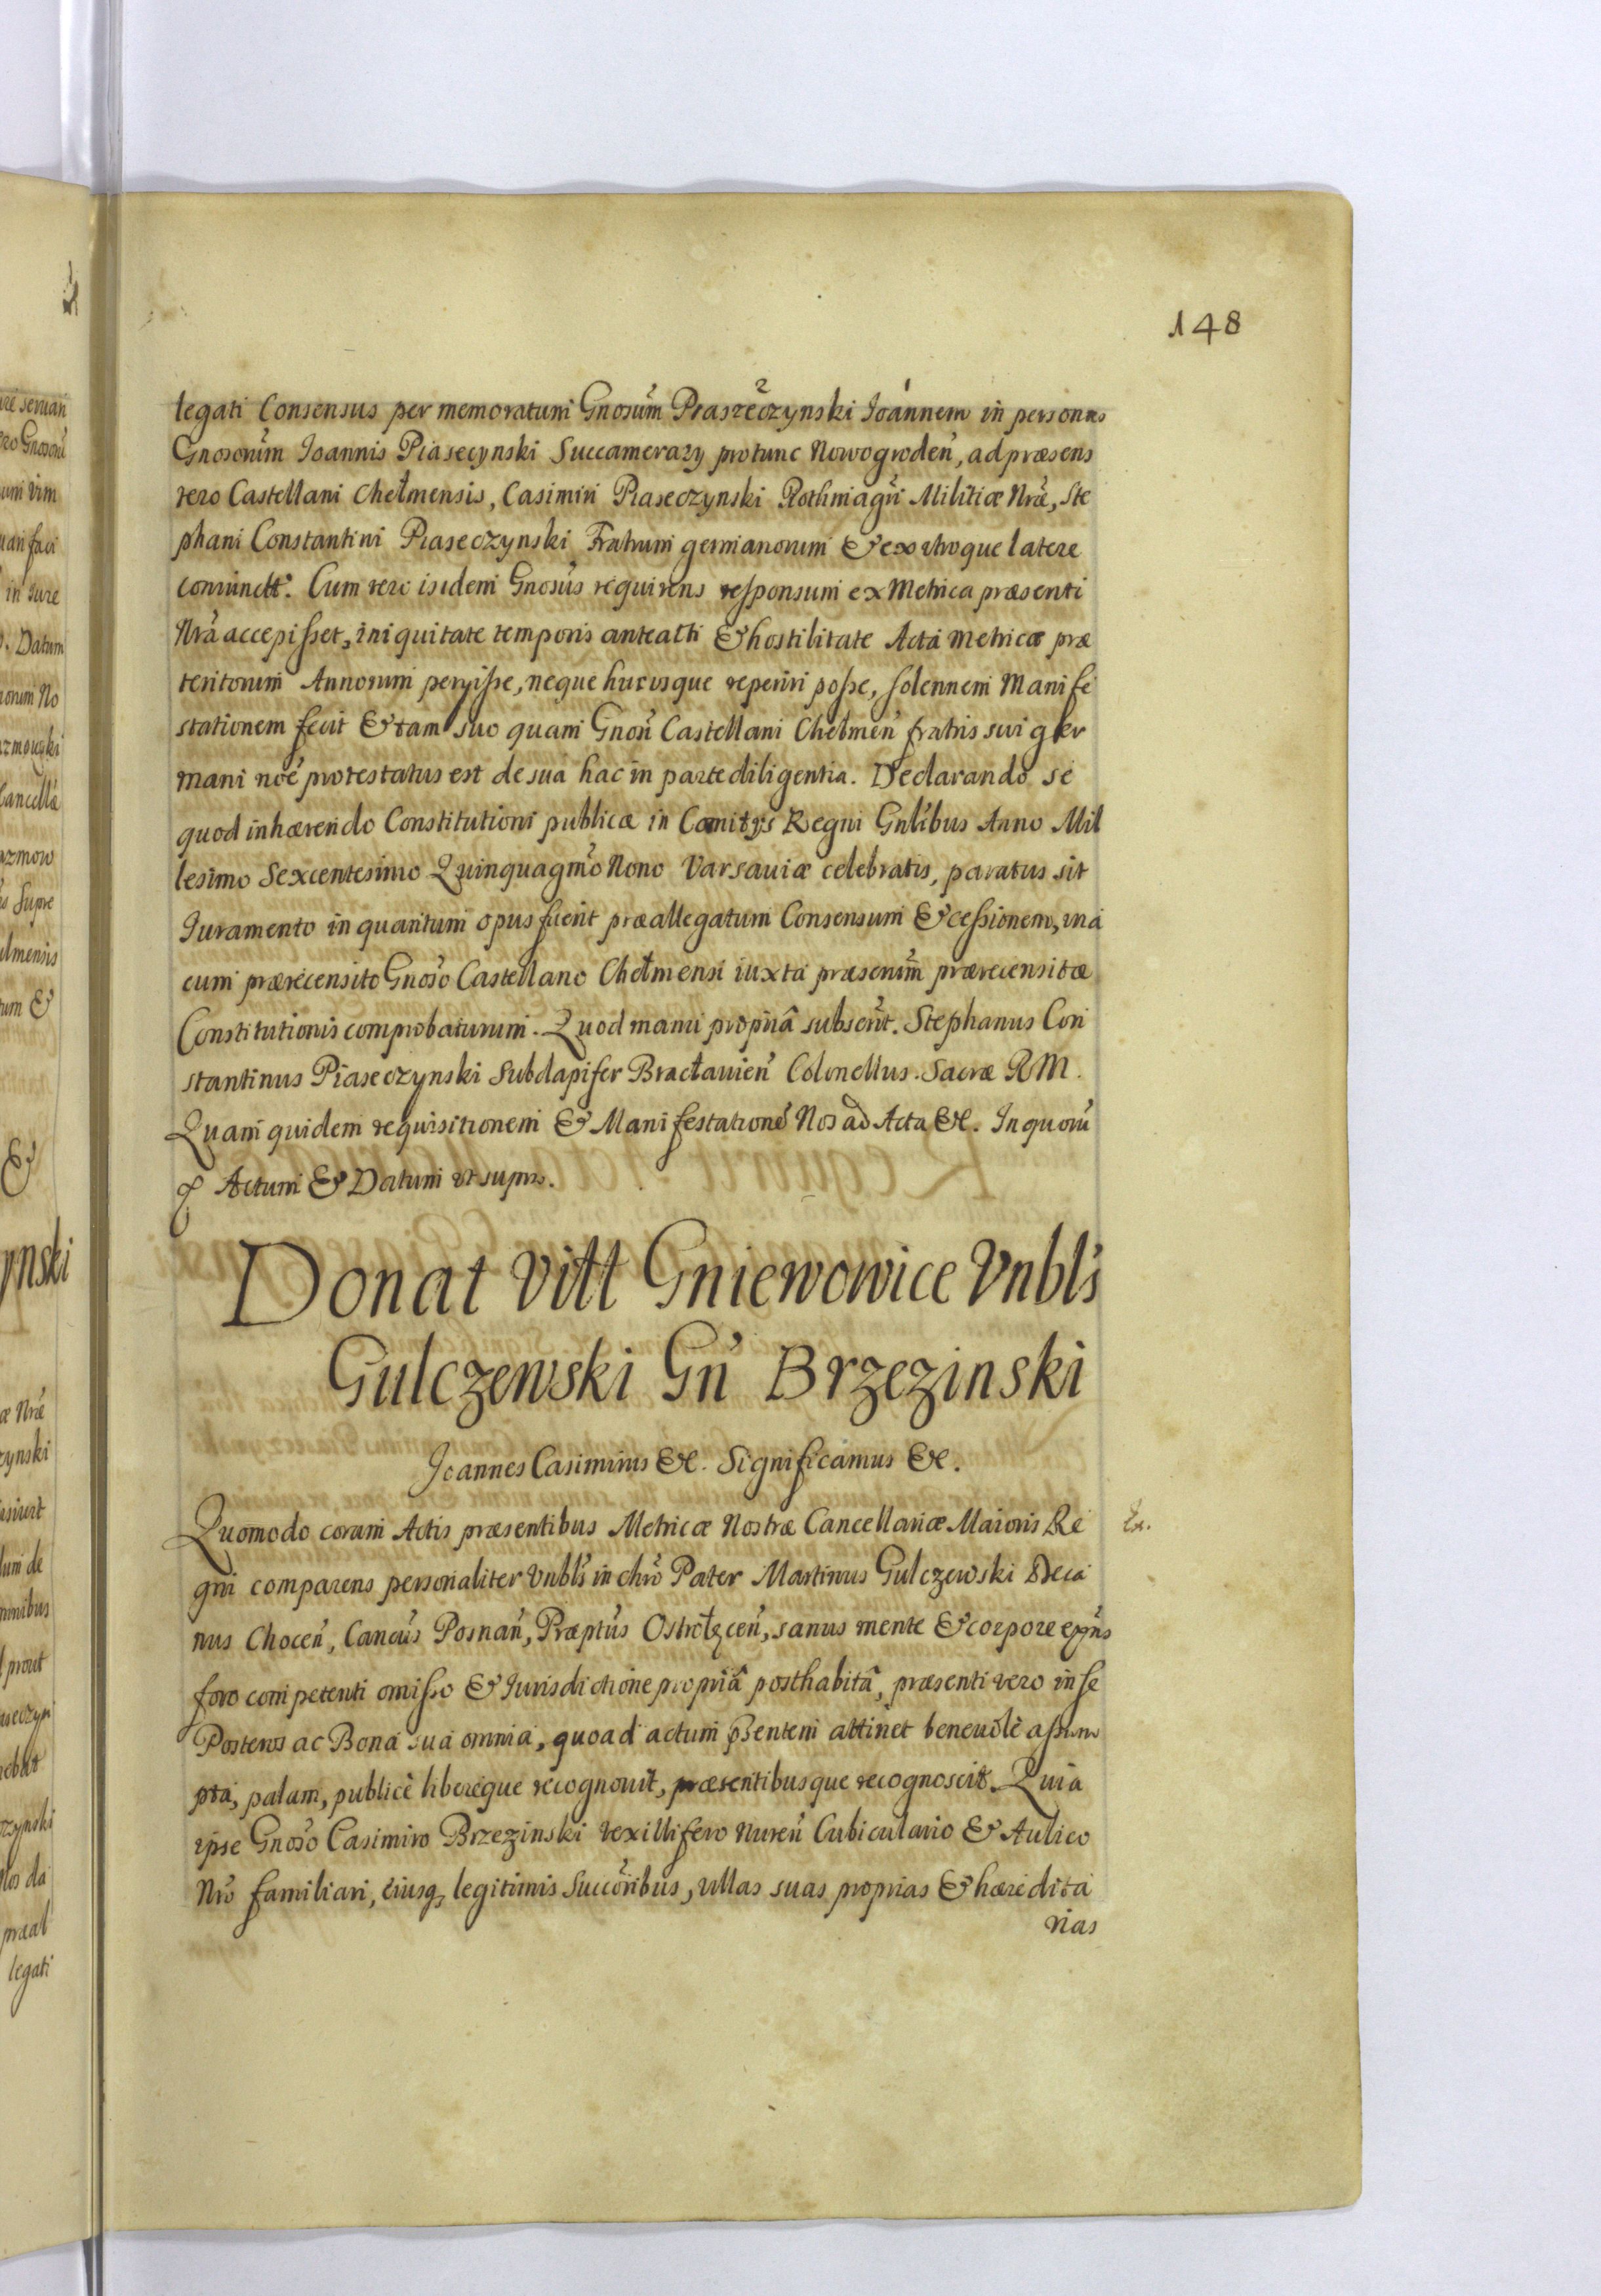 148
legati Consensus per memoratum Gnosum Piaszeczynski Ioannem in personas
Gnosorum Ioannis Piasecynski Succamerary protunc Nowogroden, ad præsens
vero Castellani Chełmensis, Casimiri Piaseczynski Rothmagri Militiæ Nræ, Ste
phani Constantini Piaseczynski Fratrum germanorum & ex utroque latere
coniunctt. Cum vero isidem Gnosus requirens responsum ex Metrica præsenti
Nra accepisset, iniquitate temporis anteacti & hostilitate Acta Metricæ præ
teritorum Annorum perijsse, neque hucusque reperiri posse, solennem Manife
stationem fecit & tam suo quam Gnosi Castellani Chelmen fratris sui ger
mani noe protestatus est de sua hac in parte diligentia. Declarando se
quod inhærendo Constitutioni publicæ in Comitijs Regni Gnlibus Anno Mil
lesimo Sexcentesimo Quinquagmo Nono Varsaviæ celebratis, paratus sit
Iuramento in quantum opus fuerit præallegatum Consensum & cessionem, una
cum prærecensito Gnoso Castellano Chełmensi iuxta præscrium prærecensitæ
Constitutionis comprobaturum. Quod manu propria subscrit. Stephanus Con
stantinus Piaseczynski Subdapifer Bracłavien Colonellus. Sacræ RM.
Quam quidem requisitionem & Manifestatione Nos ad Acta &c. In quoru
Actum & Datum ut supra.
Donat Vitt Gniewowice Vnbls
Gulczewski Gn Brzezinski
Ioannes Casimirus &c. Significamus &c.
Quomodo coram Actis præsentibus Metricæ Nostræ Cancellariæ Maioris Re
gni comparens personaliter Vnbls in chro Pater Martinus Gulczewski Deca
nus Chocen, Cancus Posnan, Præptus Ostrołęcen, sanus mente & corpore exns
foro competenti omisso & Iurisdictione propriâ posthabitâ, præsenti vero in se
Posteros ac Bona sua omnia, quoad actum psentem attinet benevolè assum
pta, palam, publicè libereque recognovit, præsentibusque recognoscit. Quia
ipse Gnoso Casimiro Brzezinski Vexillifero Nuren Cubiculario & Aulico
Nro familiari, eiusq legitimis Succoribus, villas suas proprias & hæredita
rias